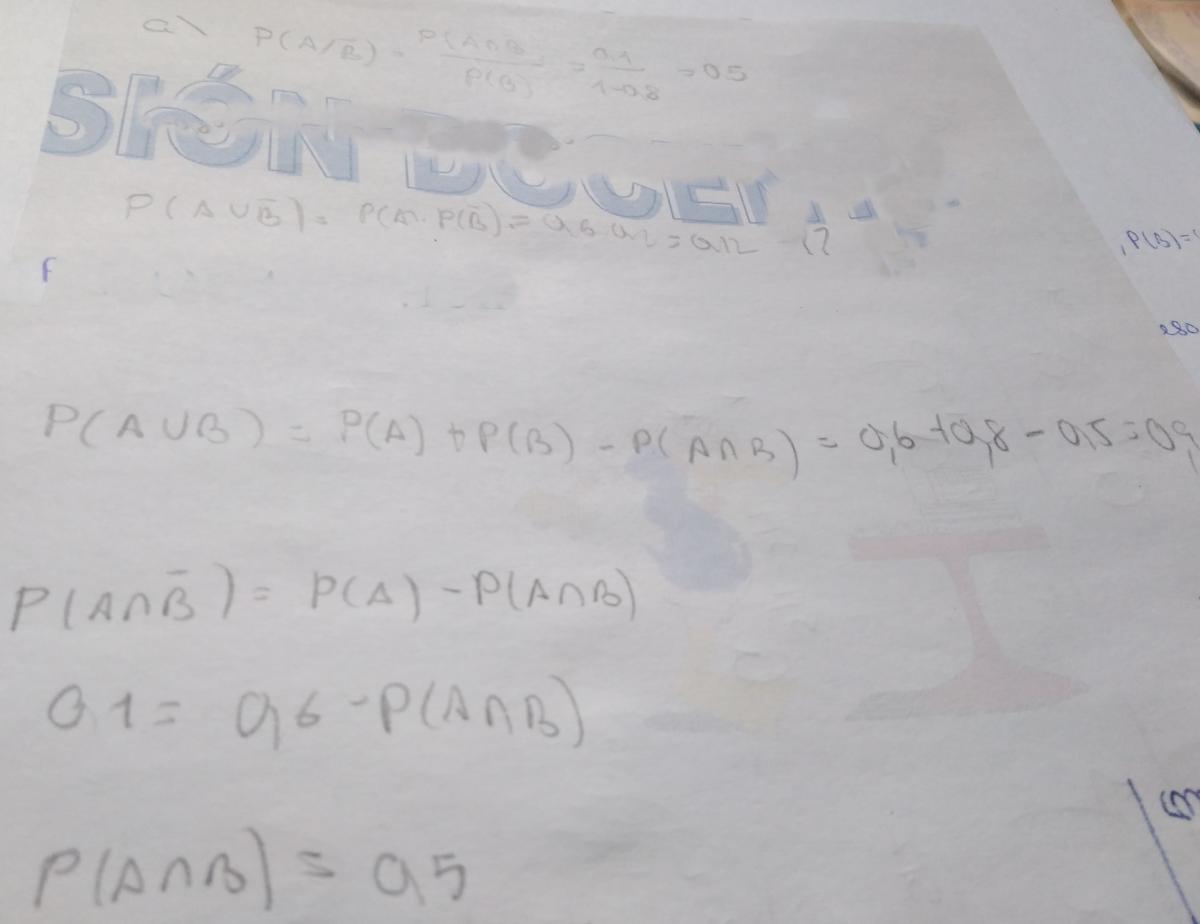 a) P(A/B̅) = P(A∩B̅) / P(B̅) = 0,1 / 1-0,8 = 0,5
SIÓN DOCEN
P(A∪B̅) = P(A). P(B̅) = 0,6. 0,2 = 0,12 ¿?
, P(B)=
P(A∪B) = P(A) + P(B) - P(A∩B) = 0,6 + 0,8 - 0,5 = 0,9
P(A∩B̅) = P(A) - P(A∩B)
0 1 = 0,6 - P(A∩B)
P(A∩B) = 0,5